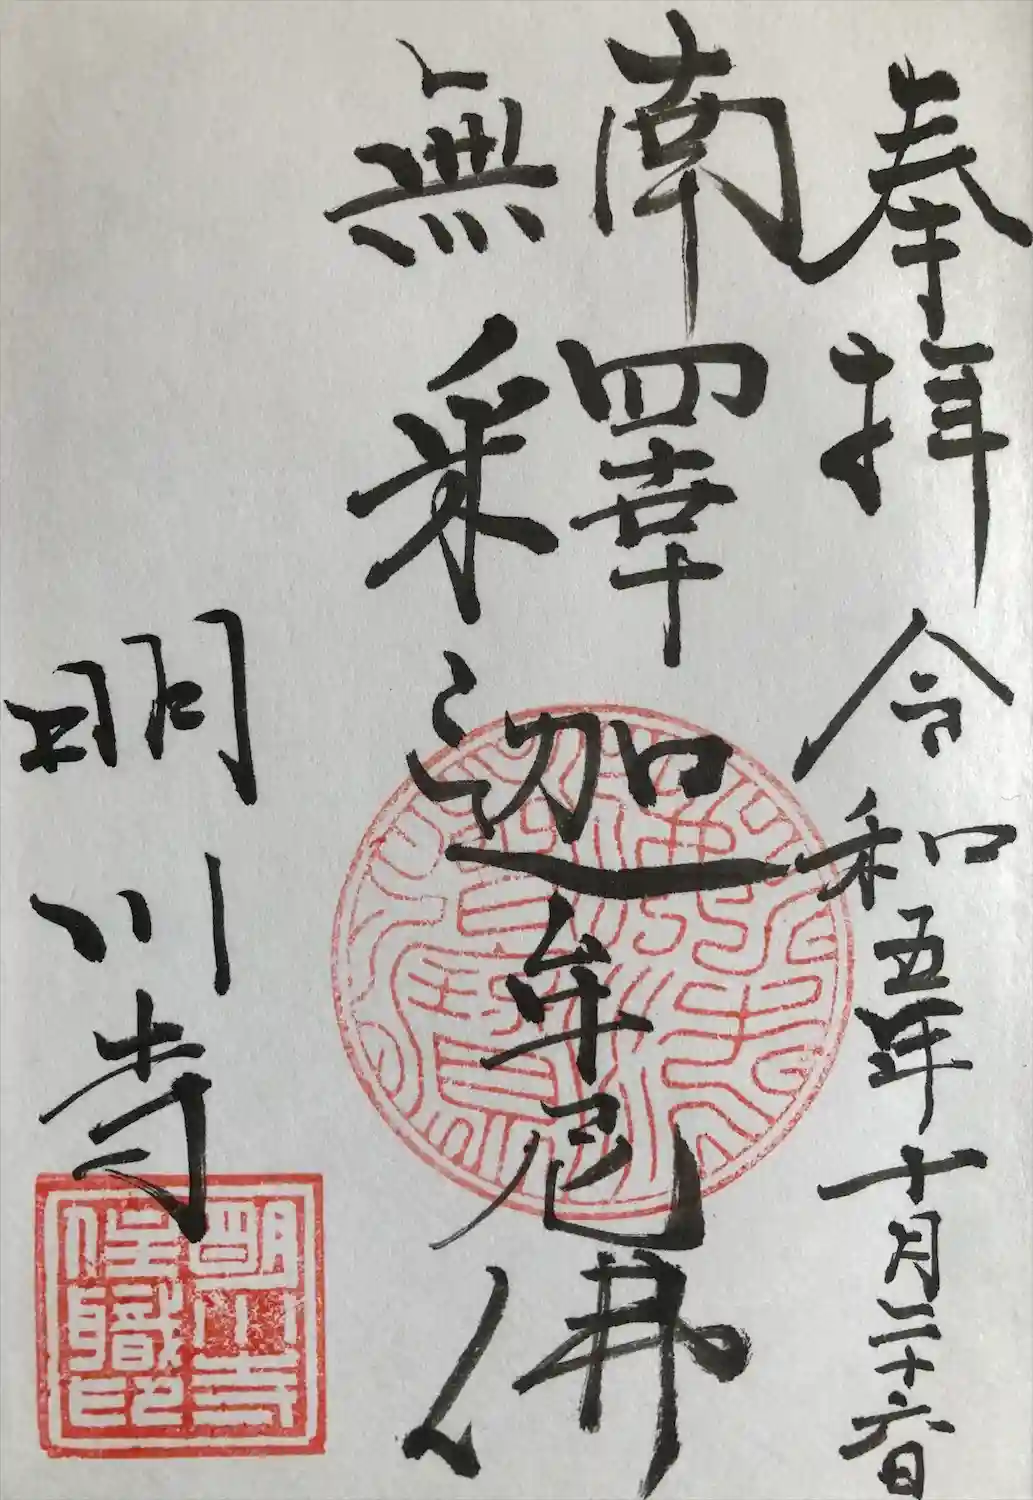 奉拝 令和五年十月二十六日
南無釋迦牟尼佛
明川寺
明川寺
住職印